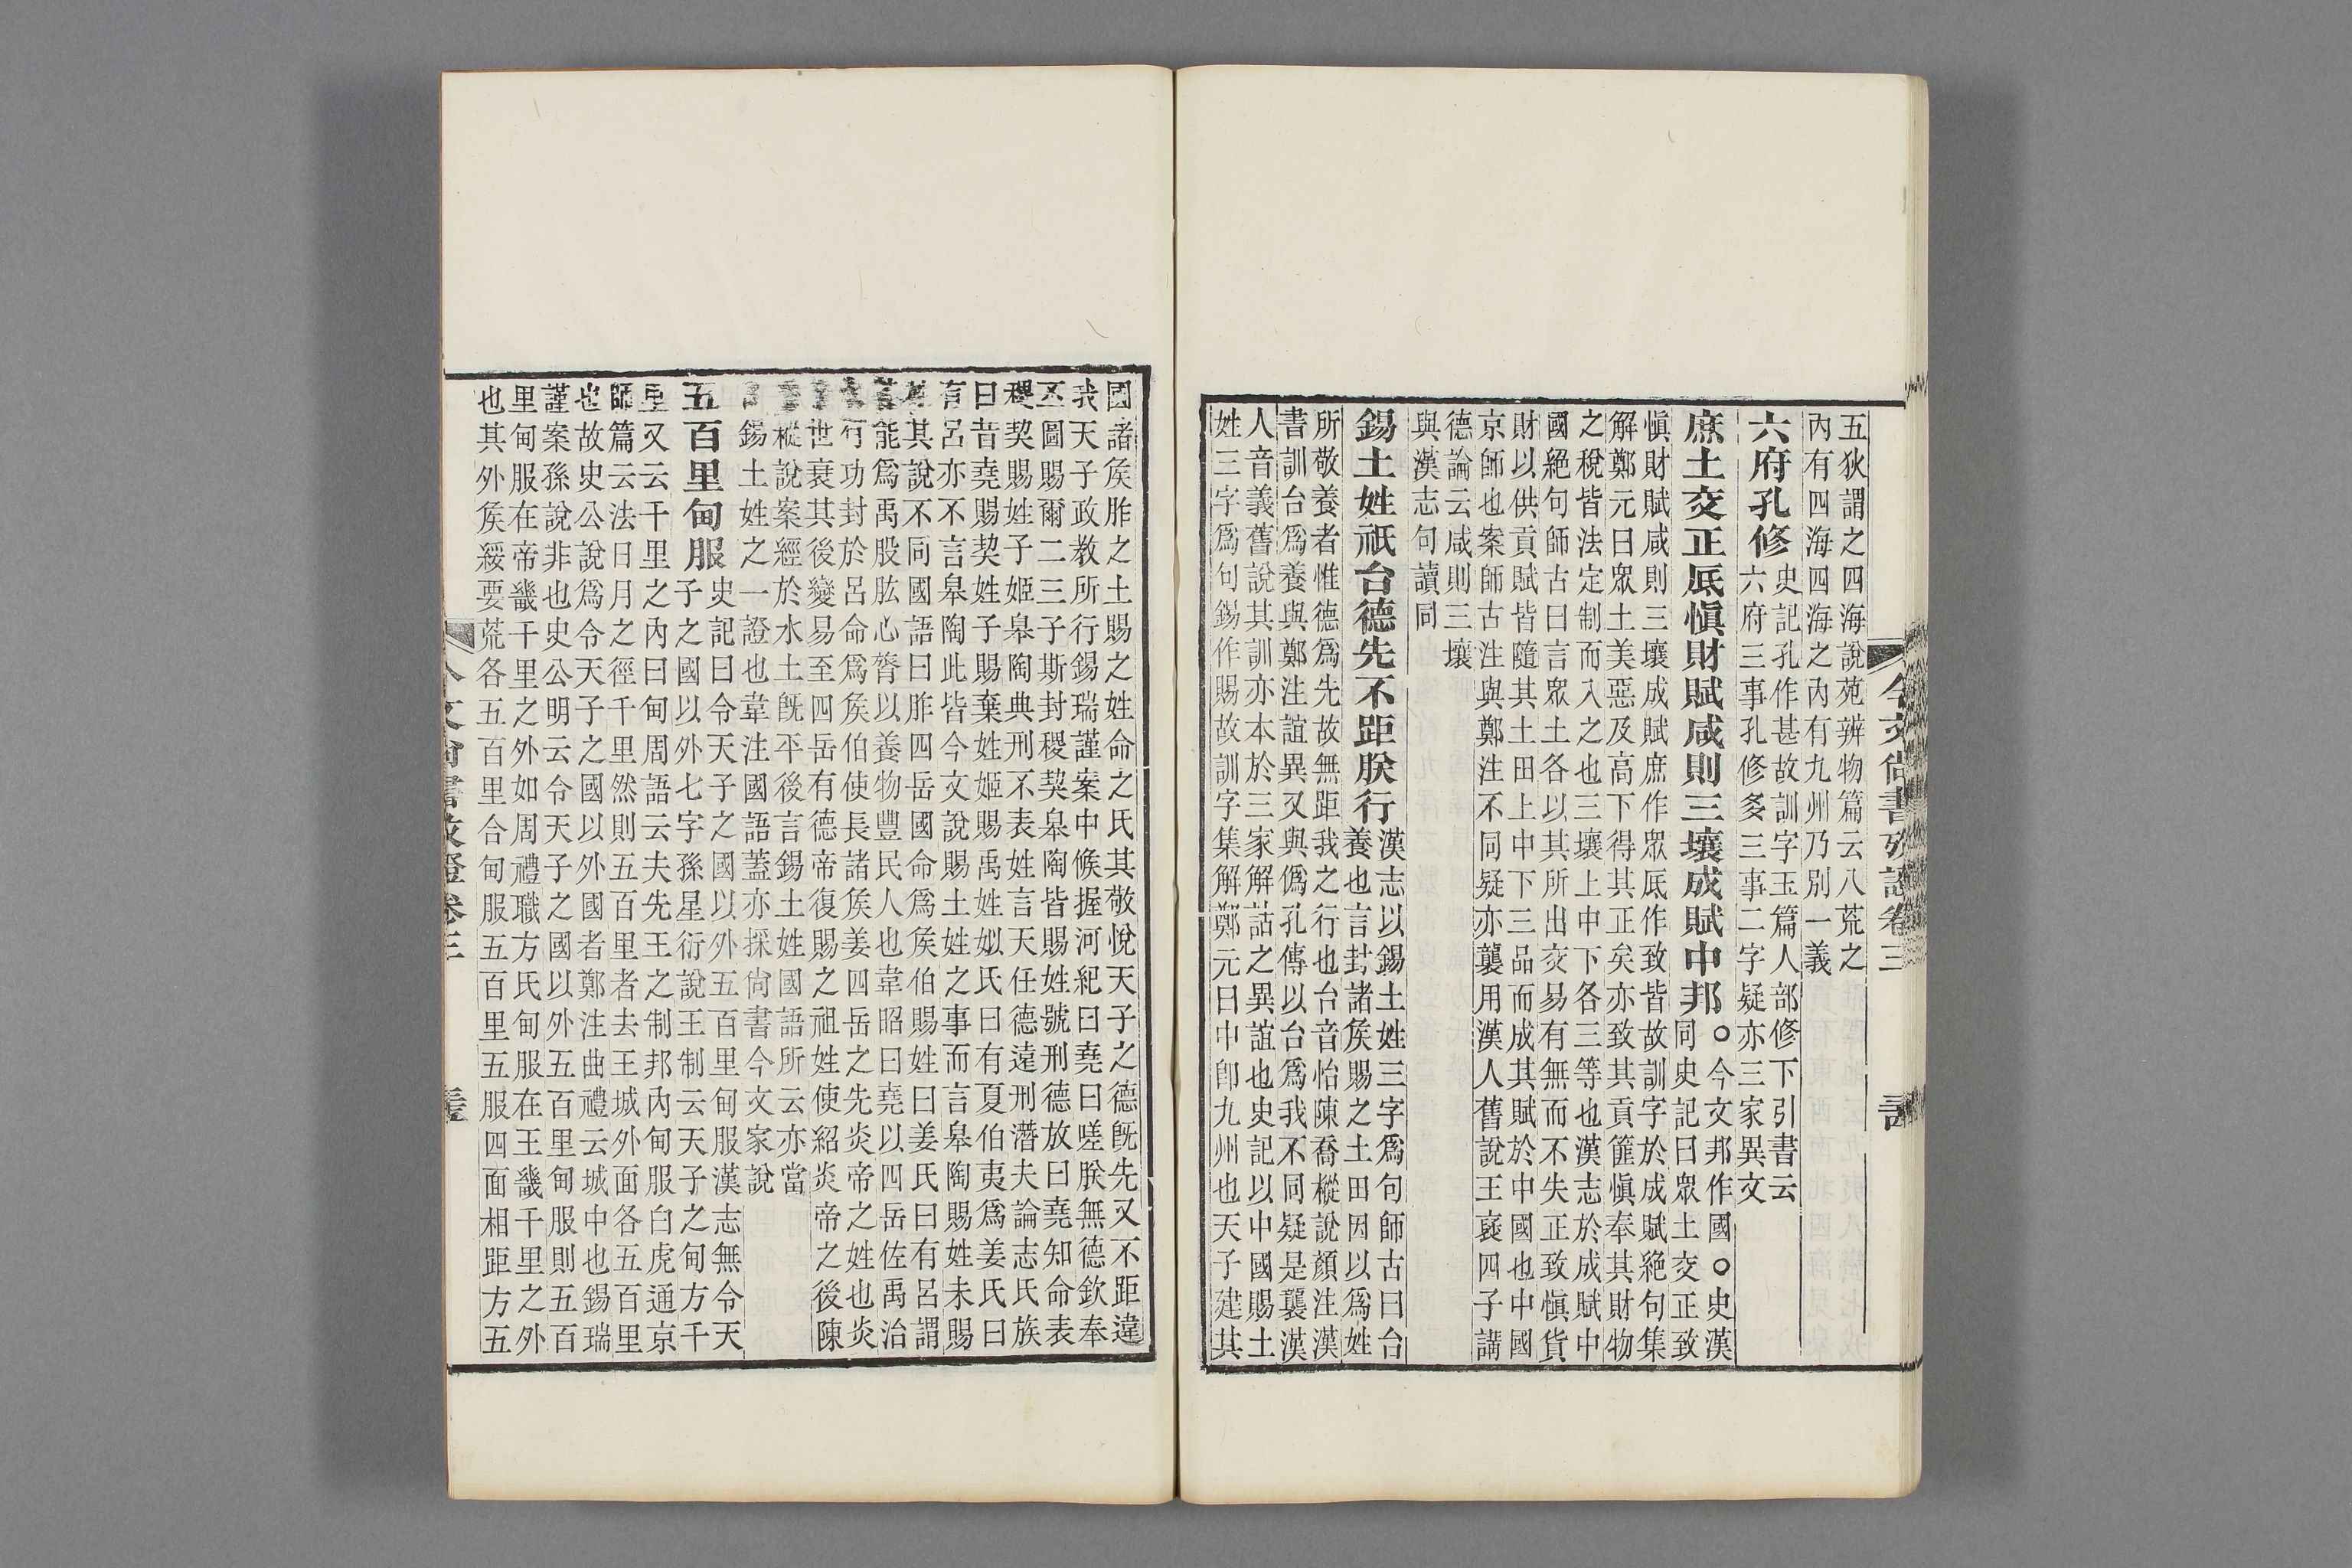 五狄謂之四海說苑辨物篇云八荒之
內有四海四海之內有九州乃別一義
六府孔修
史記孔作甚故訓字玉篇人部修下引書云
六府三事孔修多三事二字疑亦三家異文
庶土交正厎愼財賦咸則三壤成賦中邦
○今文邦作國○史漢
同史記曰眾土交正致
愼財賦咸則三壤成賦庶作眾厎作致皆故訓字於成賦絕句集
解鄭元曰眾土美惡及高下得其正矣亦致其貢篚愼奉其財物
之稅皆法定制而入之也三壤上中下各三等也漢志於成賦中
國絕句師古曰言眾土各以其所出交易有無而不失正致愼貨
財以供貢賦皆隨其土田上中下三品而成其賦於中國也中國
京師也案師古注與鄭注不同疑亦襲用漢人舊說王襃四子講
德論云咸則三壤
與漢志句讀同
錫土姓祇台德先不距朕行
漢志以錫土姓三字爲句師古曰台
養也言封諸矦賜之土田因以爲姓
所敬養者惟德爲先故無距我之行也台音怡陳喬樅說顏注漢
書訓台爲養與鄭注誼異又與僞孔傳以台爲我不同疑是襲漢
人音義舊說其訓亦本於三家解詁之異誼也史記以中國賜土
姓三字爲句錫作賜故訓字集解鄭元曰中卽九州也天子建其
今文尚書攷證卷三
國諸矦胙之土賜之姓命之氏其敬悅天子之德旣先又不距違
我天子政教所行錫瑞謹案中候握河紀曰堯曰嗟朕無德欽奉
丕圖賜爾二三子斯封稷契皋陶皆賜姓號刑德放曰堯知命表
稷契賜姓子姬皋陶典刑不表姓言天任德遠刑潛夫論志氏族
曰昔堯賜契姓子賜棄姓姬賜禹姓姒氏曰有夏伯夷爲姜氏曰
有呂亦不言皋陶此皆今文說賜土姓之事而言皋陶賜姓未賜
姓其說不同國語曰胙四岳國命爲矦伯賜姓曰姜氏曰有呂謂
能爲禹股肱心膂以養物豐民人也韋昭曰堯以四岳佐禹治
有功封於呂命爲矦伯使長諸矦姜四岳之先炎帝之姓也炎
世衰其後變易至四岳有德帝復賜之祖姓使紹炎帝之後陳
樅說案經於水土旣平後言錫土姓國語所云亦當
錫土姓之一證也韋注國語蓋亦採尙書今文家說
五百里甸服
史記曰令天子之國以外五百里甸服漢志無令天
子之國以外七字孫星衍說王制云天子之甸方千
里又云千里之內曰甸周語云夫先王之制邦內甸服白虎通京
師篇云法日月之徑千里然則五百里者去王城外面各五百里
也故史公說爲令天子之國以外國者鄭注曲禮云城中也錫瑞
謹案孫說非也史公明云令天子之國以外五百里甸服則五百
里甸服在帝畿千里之外如周禮職方氏甸服在王畿千里之外
也其外矦綏要荒各五百里合甸服五百里五服四面相距方五
今文尚書攷證卷三